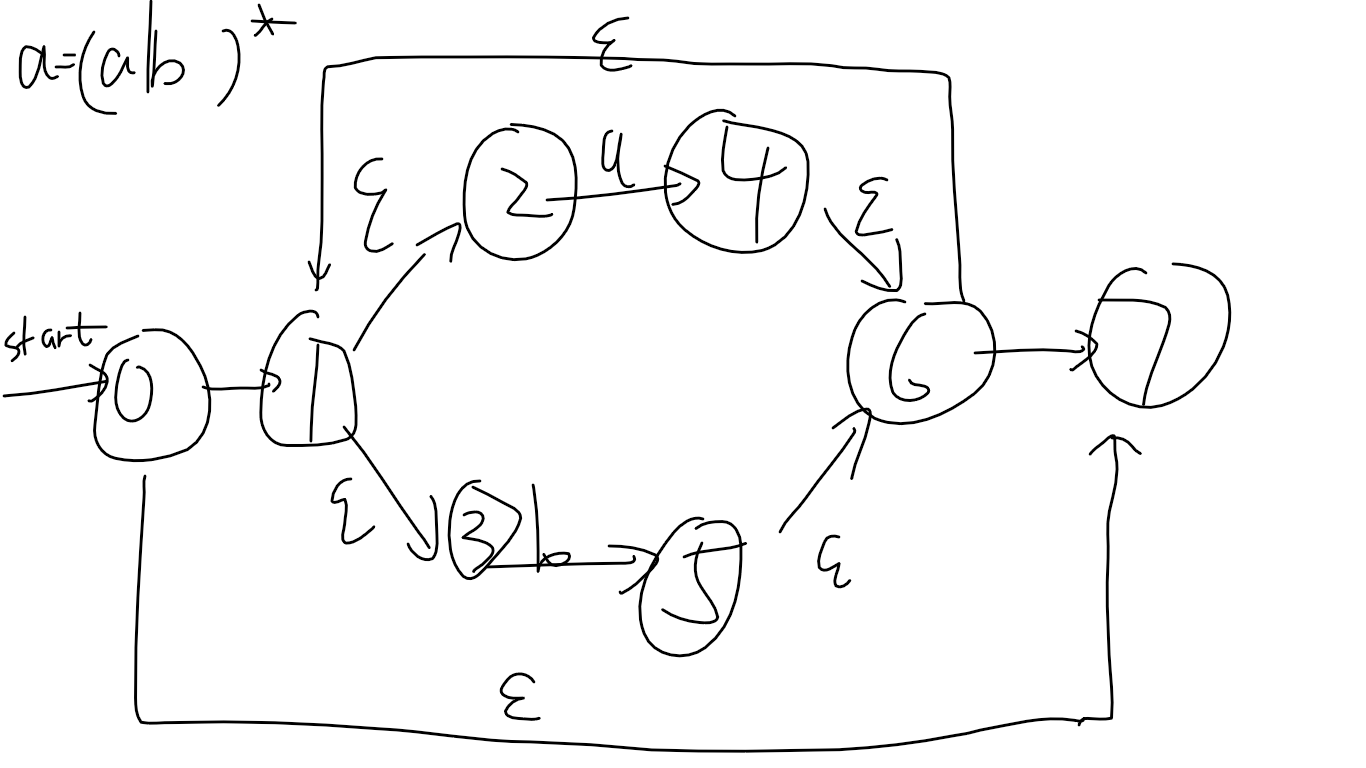 a=(a|b)*
ε
ε
2
a
4
ε
start
0
1
6
7
ε
3
b
5
ε
ε